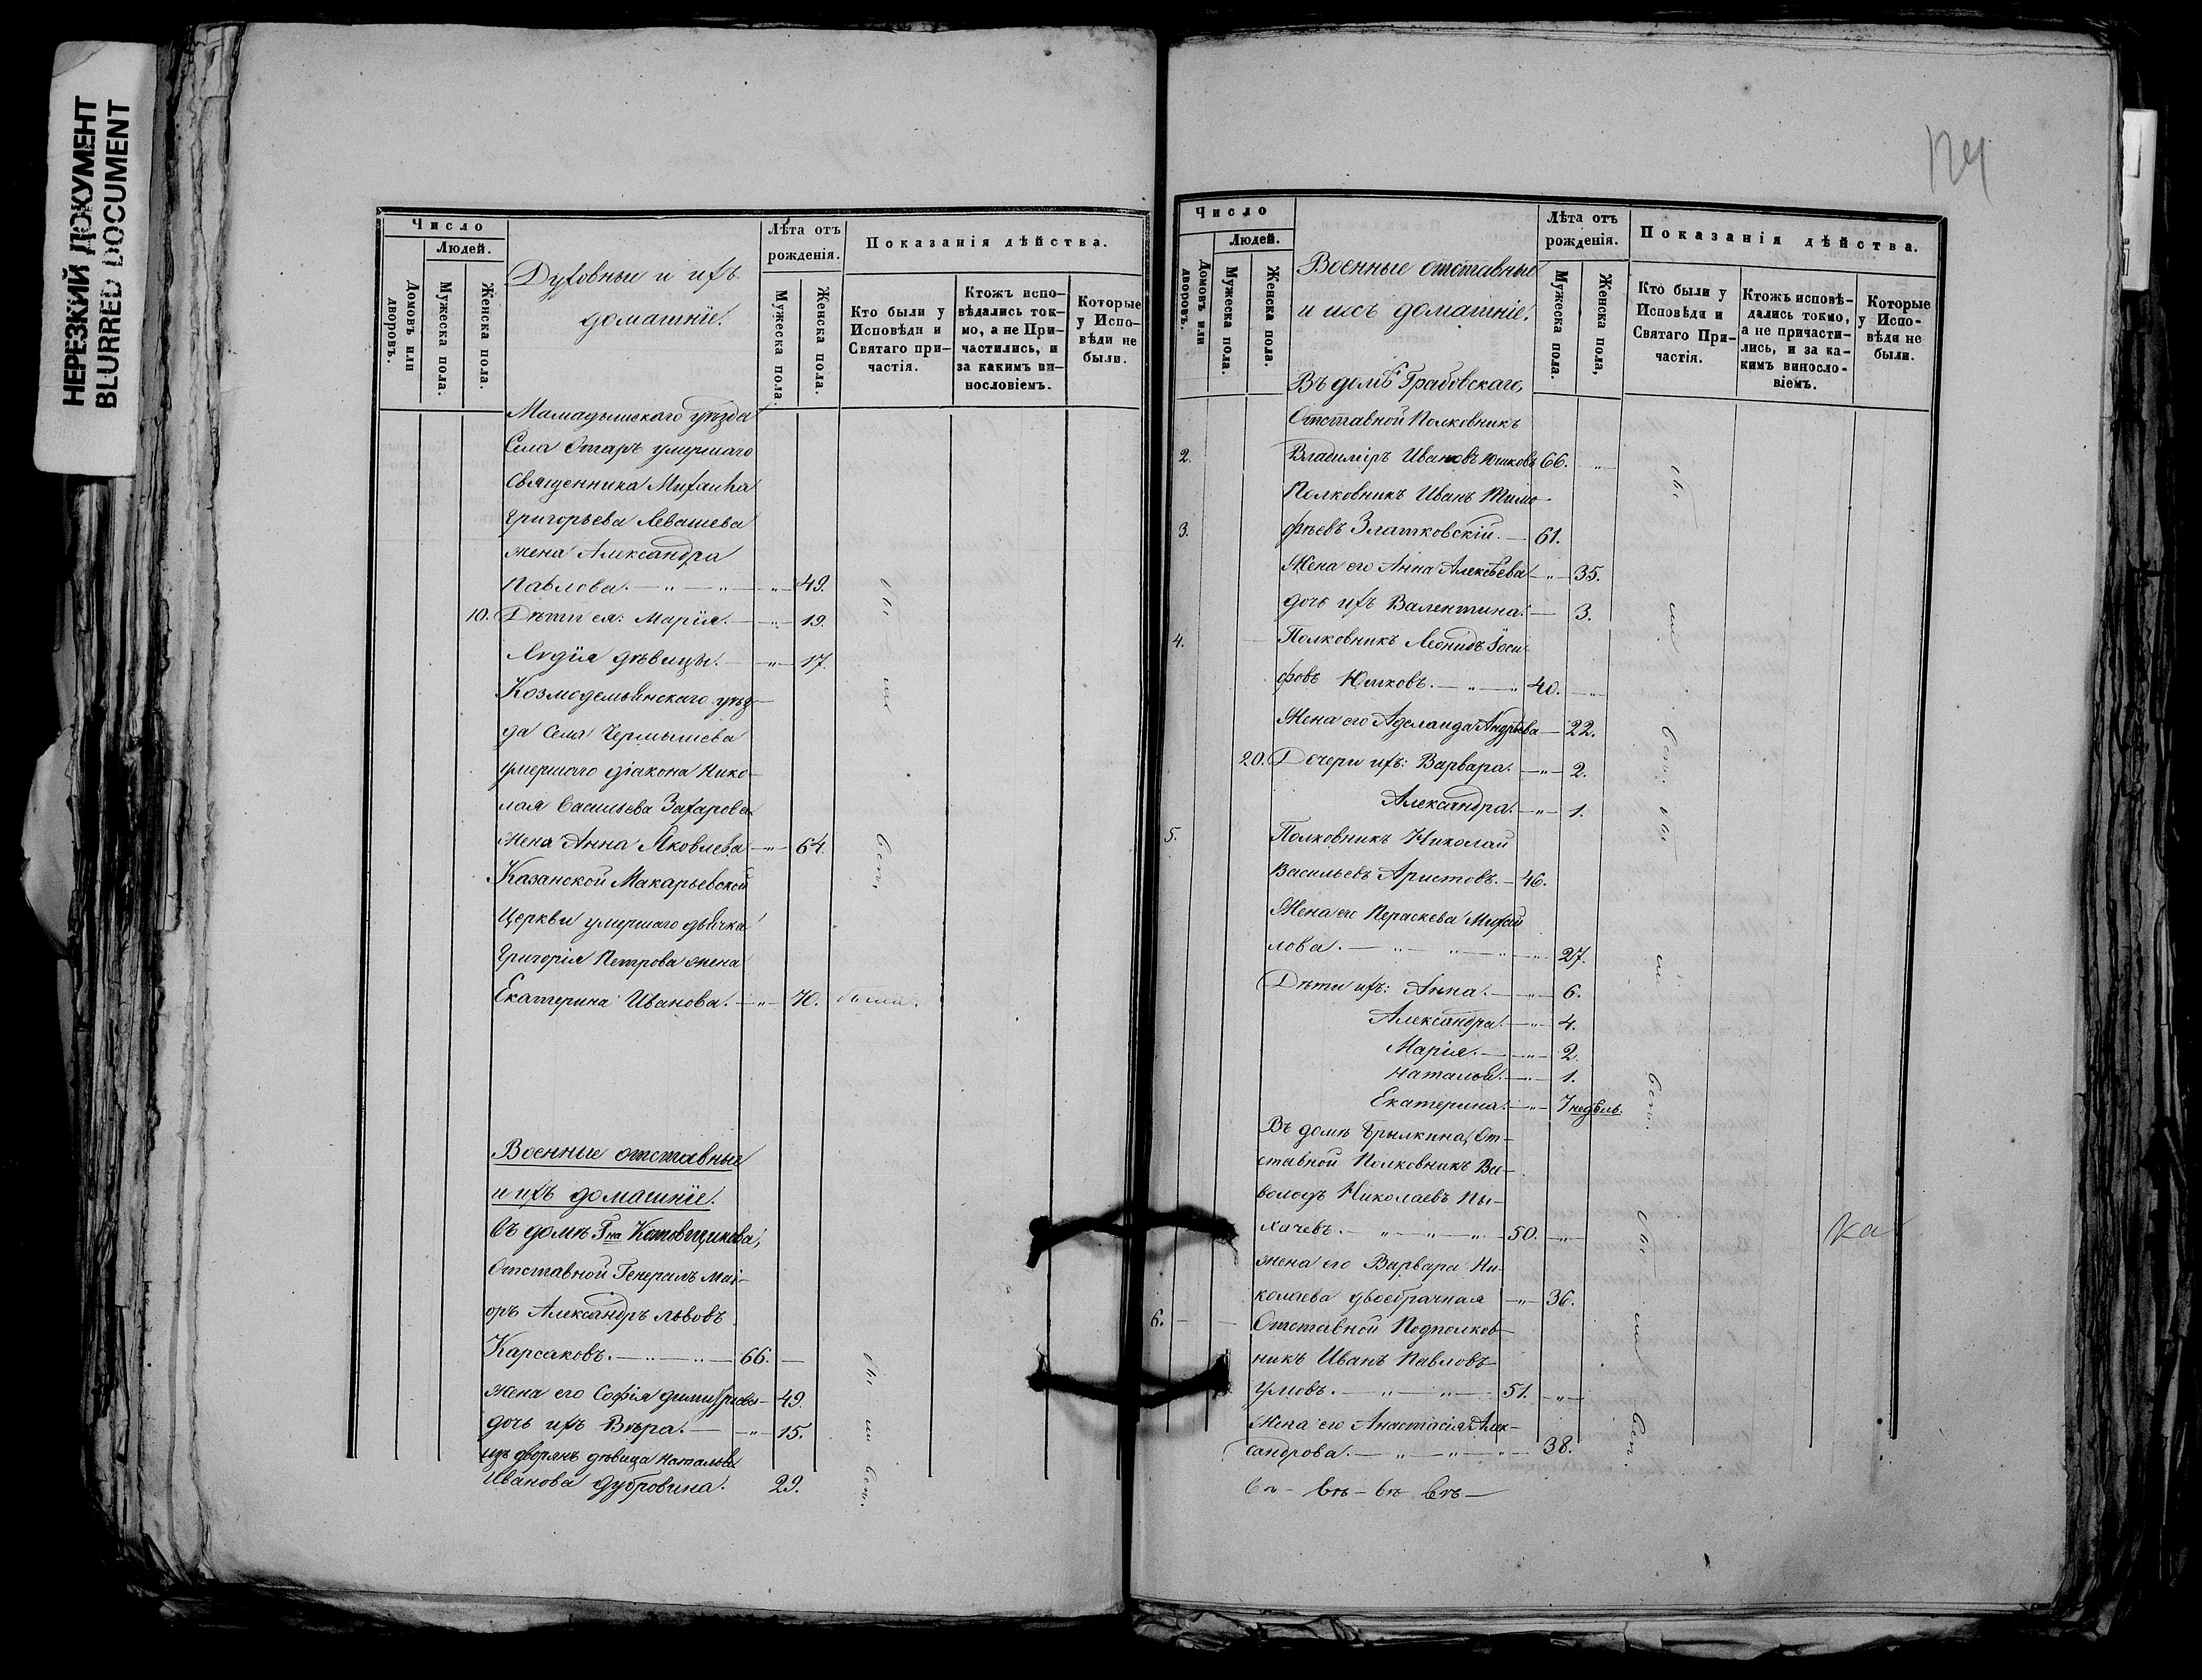 НЕРЕЗКИЙ ДОКУМЕНТ
BLURRED DOCUMENT
Число
Людей.
Домовъ или дворовъ.
Мужеска пола.
Женска пола.
Духовные и ихъ
домашніе.
Лѣта отъ
рожденія.
Мужеска пола.
Женска пола.
Показанія дѣйства.
Кто были у
Исповѣди и
Святаго при-
частія.
Ктожъ испо-
вѣдались ток-
мо, а не При-
частились, и
за какимъ ви-
нословіемъ.
Которые
у Испо-
вѣди не
были.
Мамадышскаго уѣзда
Села Отаръ умершаго
Священника Михаила
Григорьева Левашева
жена Александра
Павлова. — „ — „ — „ — 49.
10. Дѣти ея: Марія. — „ — 19.
Лидія дѣвицы. — „ — 17.
Козмодемьянскаго уѣз-
да села Чермышева
умершаго діакона Нико-
лая Васильева Захарова
жена Анна Яковлева — „ — 64.
Казанской Макарьевской
Церкви умершаго дьячка
Григорія Петрова жена
Екатерина Иванова. — „ — 70. была.
Военные отставные
и ихъ домашніе.
Въ домѣ Гна Котовщикова,
Отставной Генералъ Маі-
оръ Александръ Львовъ
Карсаковъ. — „ — „ — 66. —
жена его Софія Димитріева — 49.
дочь ихъ Вѣра. — „ — 15.
изъ дворянъ дѣвица Наталья
Иванова Дубровина. 29.
бы
ли
всѣ.
124
Число
Людей.
Домовъ или дворовъ.
Мужеска пола.
Женска пола.
Военные отставные
и ихъ домашніе.
Лѣта отъ
рожденія.
Мужеска пола.
Женска пола,
Показанія дѣйства.
Кто были у
Исповѣди и
Святаго При-
частія.
Ктожъ исповѣ-
дались токмо,
а не причасти-
лись, и за ка-
кимъ виносло-
віемъ.
Которые
у Испо-
вѣди не
были.
Въ домѣ Грабовскаго,
Отставной Полковникъ
2. Владиміръ Ивановъ Юшковъ 66. „
Полковникъ Иванъ Тимо-
3. фѣевъ Златковскій. — 61.
Жена его Анна Алексѣева — „ — 35.
дочь ихъ Валентина. — 3.
4. Полковникъ Леонидъ Іоси-
фовъ Юшковъ. — „ — „ 40. — „
Жена его Аделаида Андрѣева — 22.
20. Дочери ихъ: Варвара. — „ — 2.
Александра. — „ — 1.
5. Полковникъ Николай
Васильевъ Аристовъ. — 46.
Жена его Параскева Михай
лова. — „ — „ — „ — 27.
Дѣти ихъ: Анна. — „ — 6.
Александра. — „ — 4.
Марія. — „ — 2.
Наталья. — „ — 1.
Екатерина. — „ — 7 недѣль.
Въ домѣ Брылкина, От-
ставной Полковникъ Все-
володъ Николаевъ Пы-
хачевъ. — „ — „ — „ — 50. — „ —
жена его Варвара Ни-
колаева двоебрачная — „ — 36.
6. Отставной Подполков-
никъ Иванъ Павловъ
Умовъ. — „ — „ — 51. — „ —
Жена его Анастасія Алек-
сандрова. — „ — „ — „ — 38.
бы
ли
всѣ.
ка